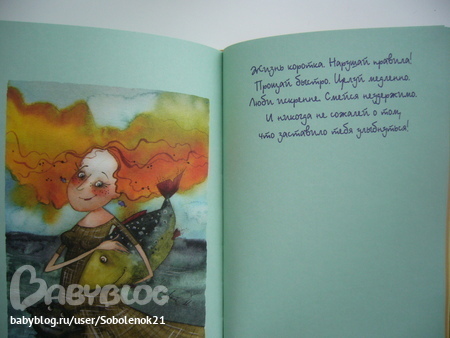 Жизнь коротка. Нарушай правила!
Прощай быстро. Целуй медленно.
Люби искренне. Смейся неудержимо.
И никогда не сожалей о том,
что заставило тебя улыбнуться!
BABYBLOG
babyblog.ru/user/Sobolenok21